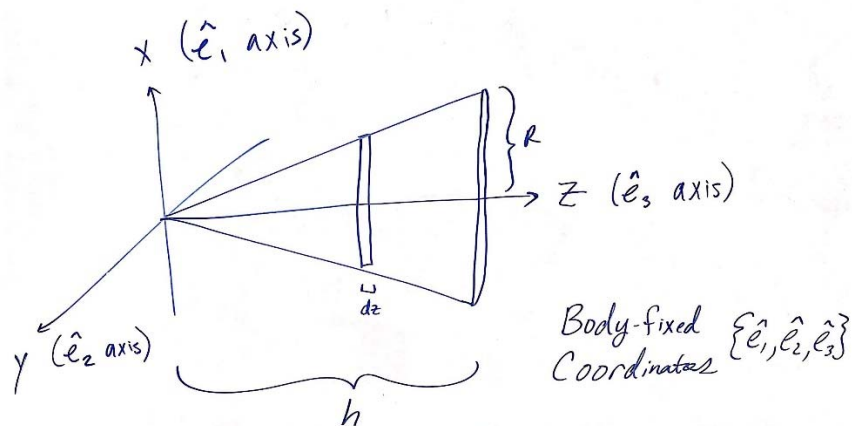 x (ê₁ axis)
R
z (ê₃ axis)
dz
y (ê₂ axis)
Body-fixed
Coordinates {ê₁,ê₂,ê₃}
h